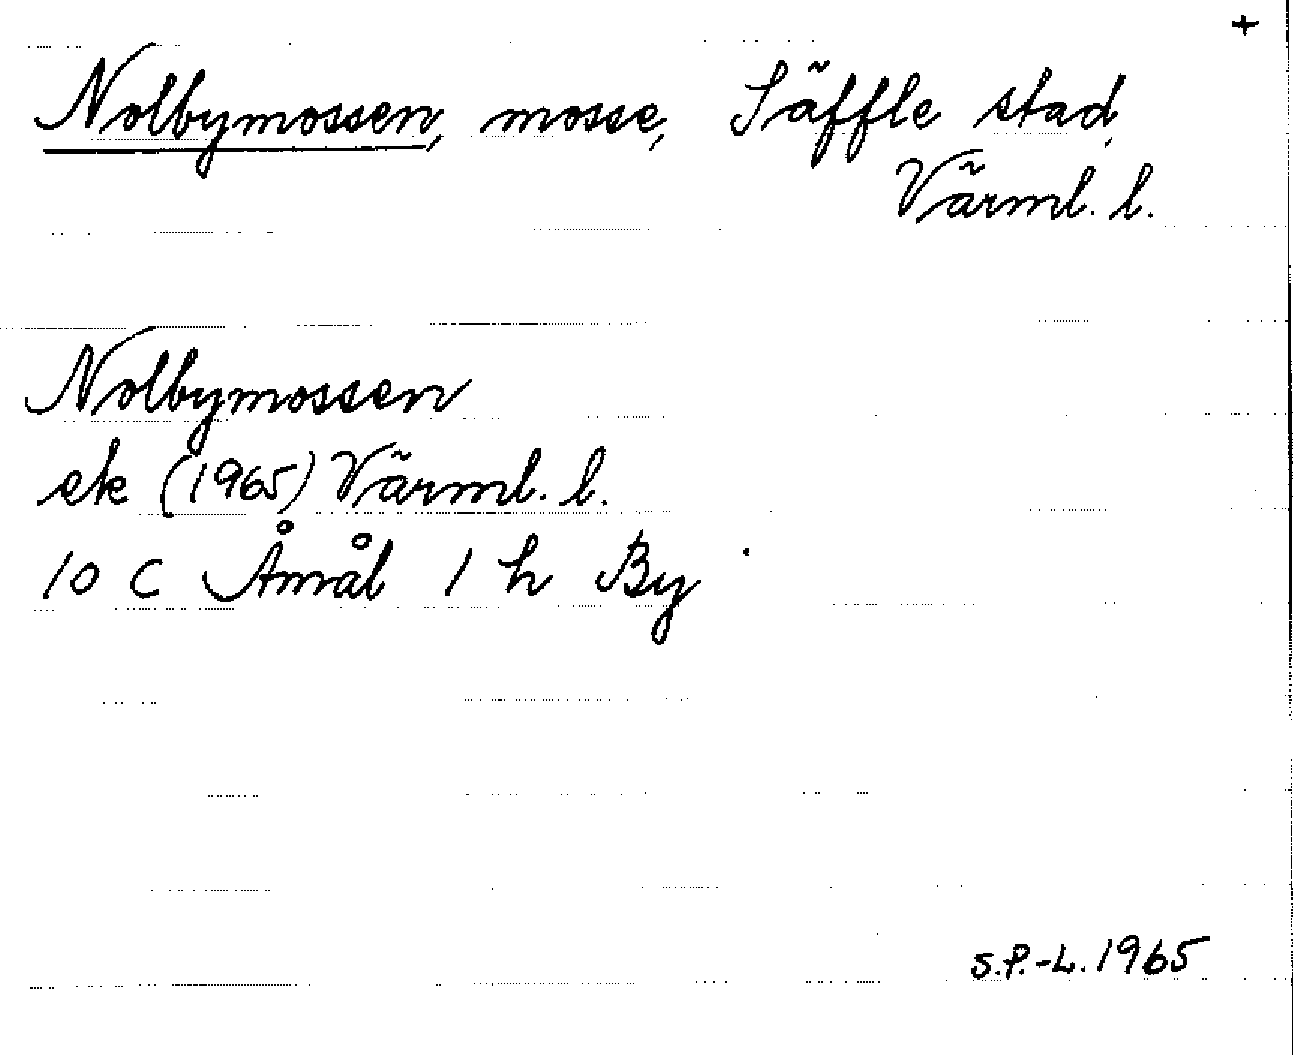 +
Nolbymossen, mosse, Säffle stad,
Värml. l.
Nolbymossen
ek (1965) Värml. l.
10 C Åmål 1 h By
S.P.-L. 1965